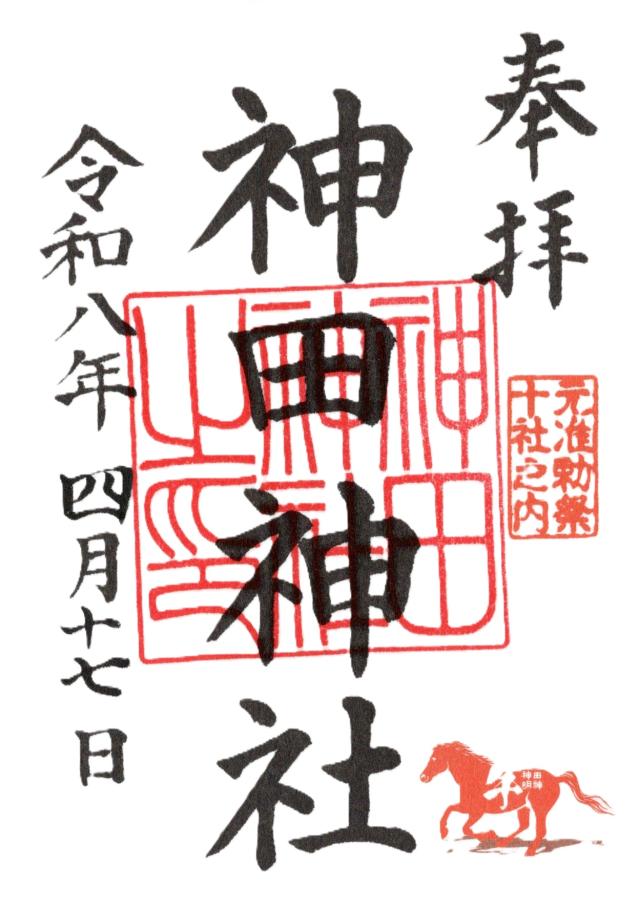 奉拝
元准勅祭
十社之内
神田神社
神田
神社
之印
令和八年 四月十七日
神田
明神